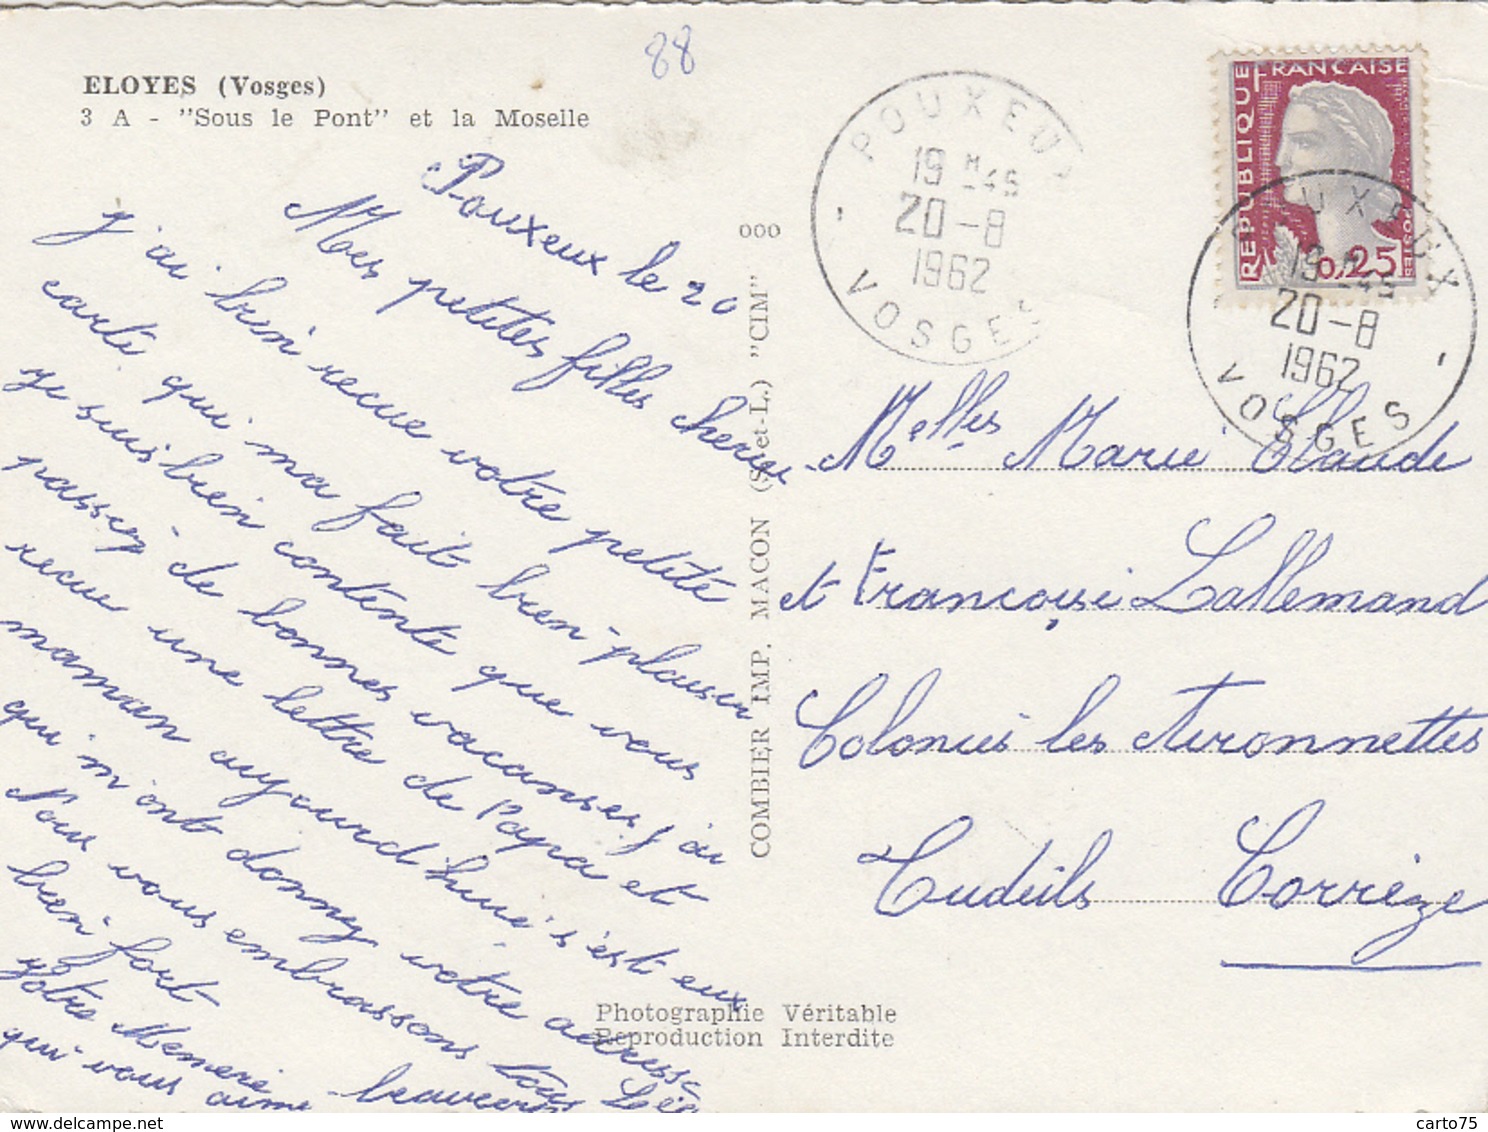 88
ELOYES (Vosges)
3 A - "Sous le Pont" et la Moselle
Pouxeux le 20
Mes petites filles cheries
j'ai bien recue votre petite
carte qui ma fait bien plaisir
je suis bien contente que vous
passez de bonnes vacanses, j'ai
recue une lettre de Papa et
maman aujourd'hui s'est eux
qui m'ont donnez votre adresse
Nous vous embrassons tous
bien fort
Votre Memere beaucoup
qui vous aime
ooo
COMBIER IMP. MACON (S.-et-L.) "CIM"
Photographie Véritable
Reproduction Interdite
POUXEUX
19 H 45
20-8
1962
VOSGES
REPUBLIQUE FRANÇAISE
0,25
POSTES
POUXEUX
19 H 45
20-8
1962
VOSGES
Melles Marie Claude
et Françoise Lallemand
Colonies les Aironnettes
Tudeils Corrèze
carto75